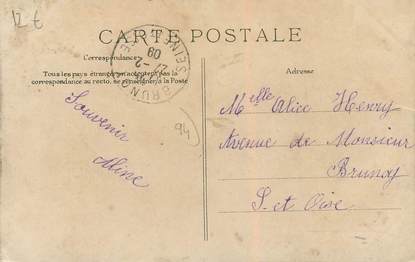 12 €
CARTE POSTALE
Correspondance
Tous les pays étrangers n'acceptent pas la
correspondance au recto, se renseigner à la Poste
Souvenir
Aline
BRUNOY
21-2
09
94
Adresse
Melle Alice Henry
Avenue de Monsieur
Brunoy
S. et Oise